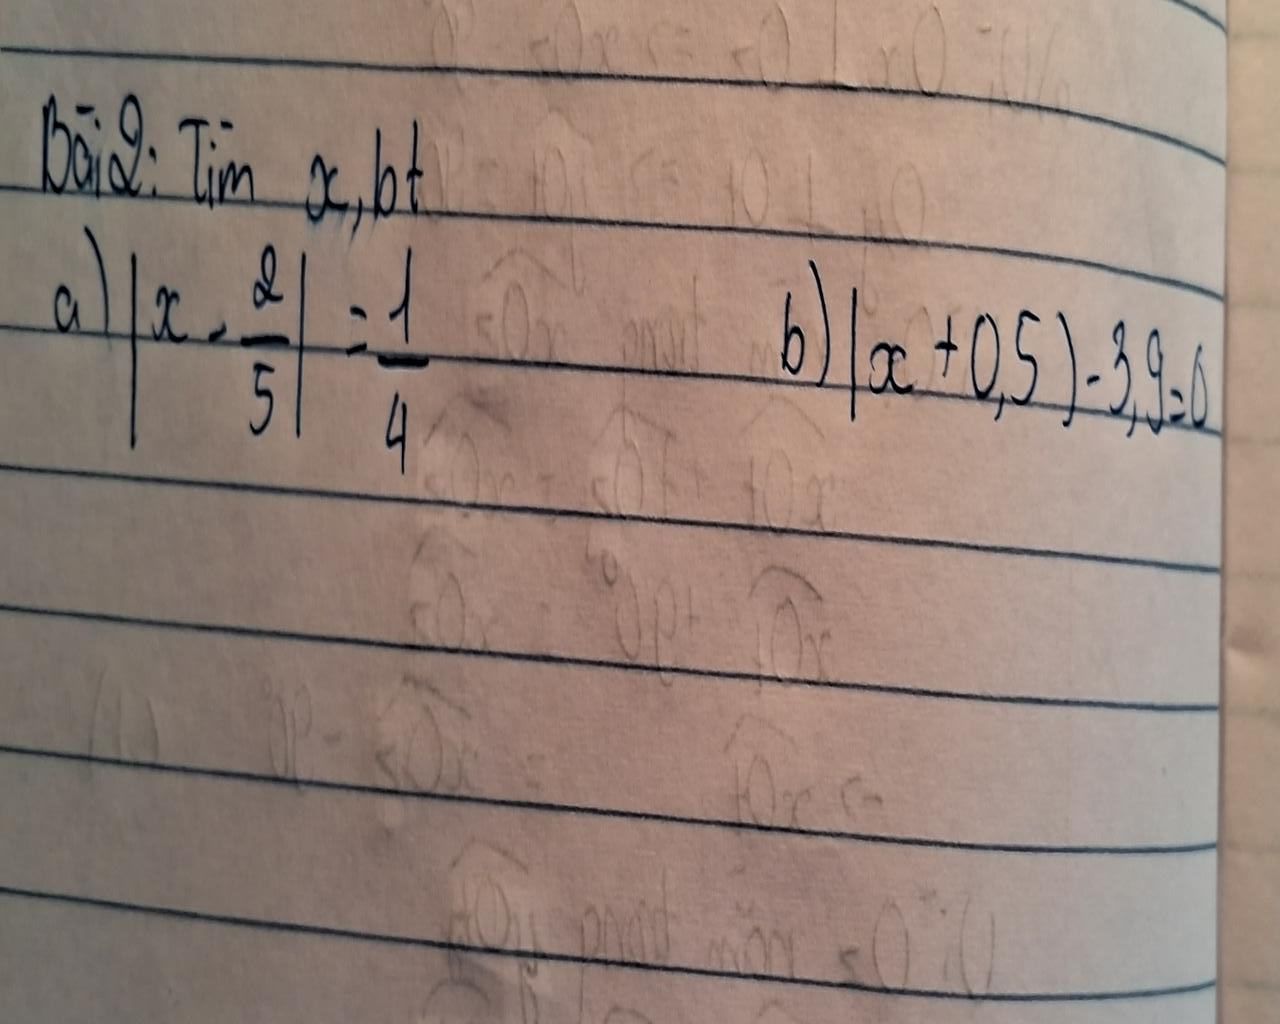 Bài 2: Tìm x, bt
a) |x - 2/5| = 1/4 b) |x + 0,5) - 3,9 = 0